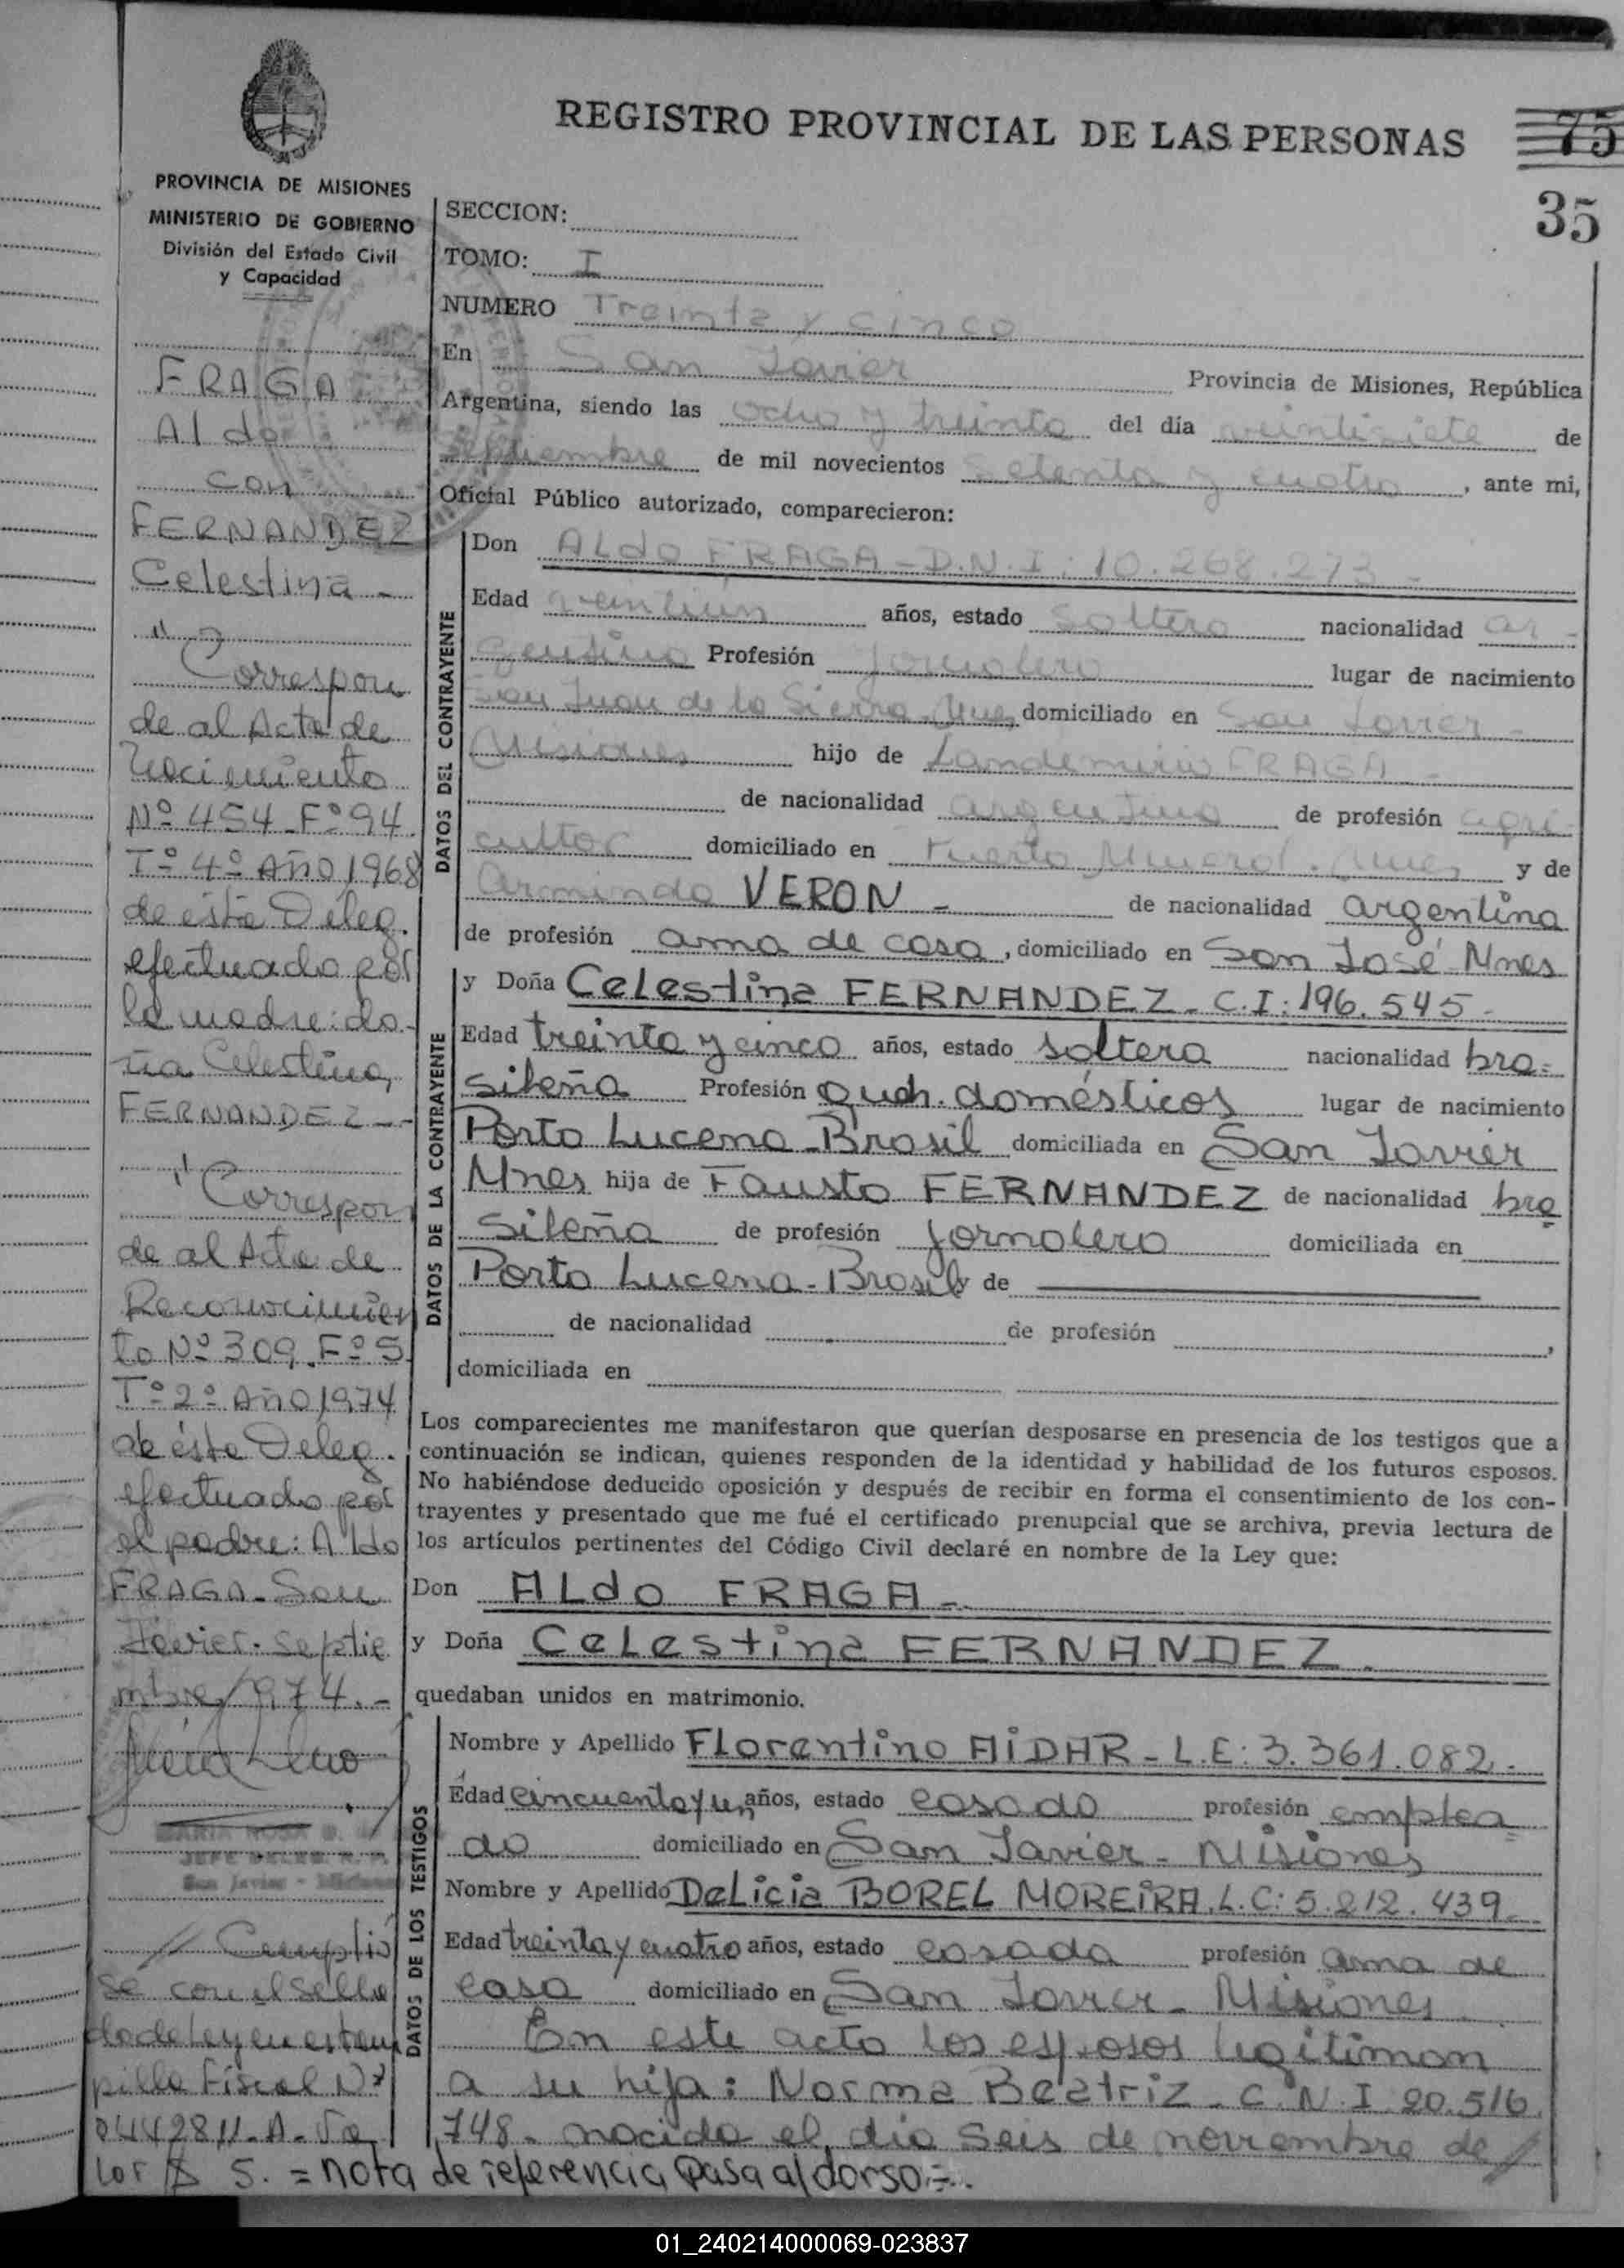 REGISTRO PROVINCIAL DE LAS PERSONAS
75
35
PROVINCIA DE MISIONES
MINISTERIO DE GOBIERNO
División del Estado Civil
y Capacidad
FRAGA
Aldo
con
FERNANDEZ
Celestina -
" Correspon
de al Acta de
Nacimiento
Nº 454 Fº 94
Tº 4º Año 1968
de ésta Deleg.
efectuado por
la madre: do-
ña Celestina,
FERNANDEZ --
" Correspon
de al Acta de
Reconocimien
to Nº 309. Fº 5
Tº 2º Año 1974
de ésta Deleg.
efectuado por
el padre: Aldo
FRAGA - San
Javier - Septie
mbre/974.-
MARIA ROSA
JEFE DELEG. R. P.
San Javier - Misiones
// Cumplió
se con el sella
do de Ley en estam
pilla Fiscal Nº
0442811-A-Va
lor $ 5. = nota de referencia pasa al dorso=.
SECCION:
TOMO: I
NUMERO Treinta y cinco
En San Javier Provincia de Misiones, República
Argentina, siendo las ocho y treinta del día veintisiete de
septiembre de mil novecientos setenta y cuatro, ante mi,
Oficial Público autorizado, comparecieron:
DATOS DEL CONTRAYENTE
Don ALdo FRAGA - D.N.I: 10.268.273 -
Edad veintiún años, estado soltero nacionalidad ar-
gentino Profesión Jornalero lugar de nacimiento
San Juan de la Sierra - Mnes, domiciliado en San Javier -
Misiones hijo de FRAGA -
de nacionalidad argentino de profesión agri-
cultor domiciliado en Puerto Mnes y de
Arminda VERON - de nacionalidad argentina
de profesión ama de casa, domiciliado en San José Mnes
DATOS DE LA CONTRAYENTE
y Doña Celestina FERNANDEZ - C.I: 196.545 -
Edad treinta y cinco años, estado soltera nacionalidad bra=
sileña Profesión Queh. domésticos lugar de nacimiento
Porto Lucena - Brasil domiciliada en San Javier
Mnes hija de Fausto FERNANDEZ de nacionalidad bra
sileña de profesión Jornalero domiciliada en
Porto Lucena - Brasil y de
de nacionalidad de profesión ,
domiciliada en
Los comparecientes me manifestaron que querían desposarse en presencia de los testigos que a
continuación se indican, quienes responden de la identidad y habilidad de los futuros esposos.
No habiéndose deducido oposición y después de recibir en forma el consentimiento de los con-
trayentes y presentado que me fué el certificado prenupcial que se archiva, previa lectura de
los artículos pertinentes del Código Civil declaré en nombre de la Ley que:
Don ALdo FRAGA -
y Doña Celestina FERNANDEZ.
quedaban unidos en matrimonio.
DATOS DE LOS TESTIGOS
Nombre y Apellido Florentino AIDAR - L.E: 3.361.082.-
Edad cincuenta y un años, estado casado profesión emplea=
do domiciliado en San Javier - Misiones
Nombre y Apellido Delicia BOREL MOREIRA. L.C: 5.212.439 -
Edad treinta y cuatro años, estado casada profesión ama de
casa domiciliado en San Javier - Misiones
En este acto los esposos legitiman
a su hija: Norma Beatriz - C.N.I 20.516.
748. nacida el día seis de noviembre de //
01_240214000069-023837